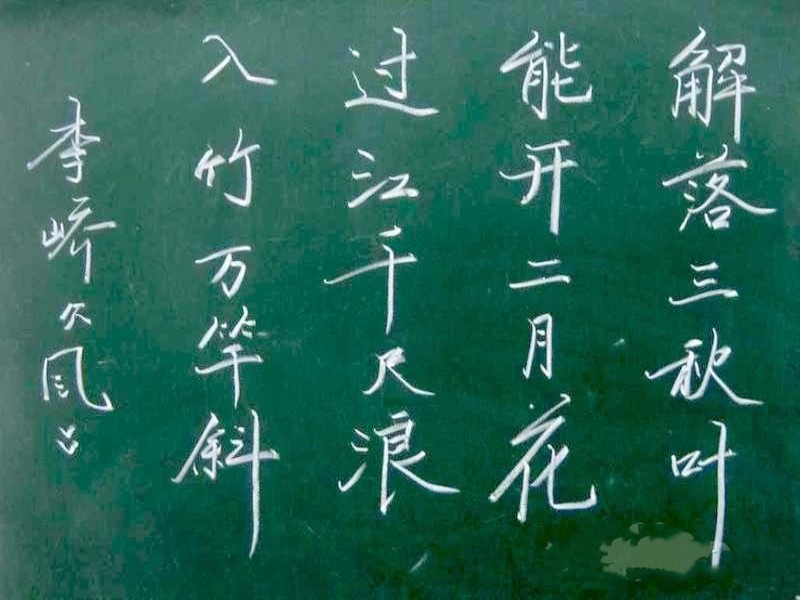 解落三秋叶
能开二月花
过江千尺浪
入竹万竿斜
李峤《风》